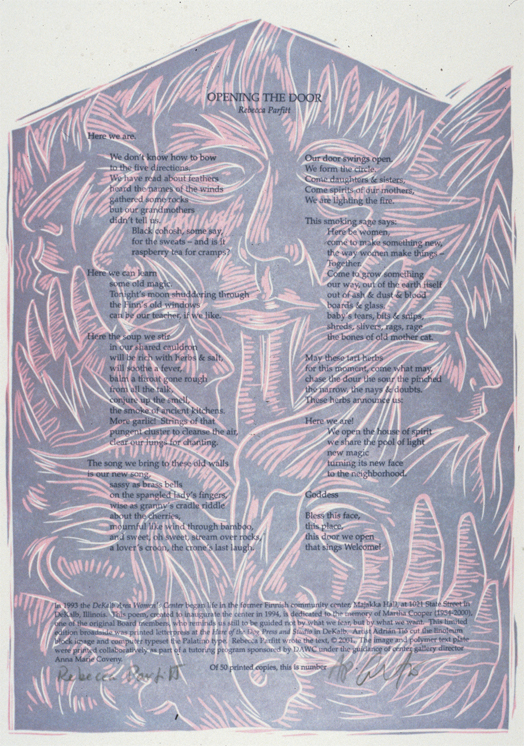 OPENING THE DOOR
Rebecca Parfitt
Here we are.
We don't know how to bow
to the five directions.
We have read about feathers
heard the names of the winds
gathered some rocks
but our grandmothers
didn't tell us.
Black cohosh, some say,
for the sweats – and is it
raspberry tea for cramps?
Here we can learn
some old magic.
Tonight's moon shuddering through
the Finn's old windows
can be our teacher, if we like.
Here the soup we stir
in our shared cauldron
will be rich with herbs & salt,
will soothe a fever,
balm a throat gone rough
from all the talk,
conjure up the smell,
the smoke of ancient kitchens.
More garlic! Strings of that
pungent cluster to cleanse the air,
clear our lungs for chanting.
The song we bring to these old walls
is our new song,
sassy as brass bells
on the spangled lady's fingers,
wise as granny's cradle riddle
about the cherries,
mournful like wind through bamboo,
and sweet, oh sweet, stream over rocks,
a lover's croon, the crone's last laugh.
Our door swings open.
We form the circle.
Come daughters & sisters,
Come spirits of our mothers,
We are lighting the fire.
This smoking sage says:
Here be women,
come to make something new,
the way women make things –
Together.
Come to grow something
our way, out of the earth itself
out of ash & dust & blood
boards & glass,
baby's tears, bits & snips,
shreds, slivers, rags, rage
the bones of old mother cat.
May these tart herbs
for this moment, come what may,
chase the dour the sour the pinched
the narrow, the nays & doubts.
These herbs announce us:
Here we are!
We open the house of spirit
we share the pool of light
new magic
turning its new face
to the neighborhood.
Goddess
Bless this face,
this place,
this door we open
that sings Welcome!
In 1993 the DeKalb Area Women's Center began life in the former Finnish community center, Majakka Hall, at 1021 State Street in
DeKalb, Illinois. This poem, created to inaugurate the center in 1994, is dedicated to the memory of Marsha Cooper (1954-2000),
one of the original Board members, who reminds us still to be guided not by what we fear, but by what we want. This limited
edition broadside was printed letterpress at the Hare of the Dog Press and Studio in DeKalb. Artist Adrian Tio cut the linoleum
block image and computer typeset the Palatino type. Rebecca Parfitt wrote the text, © 2001. The image and polymer text plate
were printed collaboratively as part of a tutoring program sponsored by DAWC under the guidance of center gallery director
Anna Marie Coveny.
Rebecca Parfitt
Of 50 printed copies, this is number